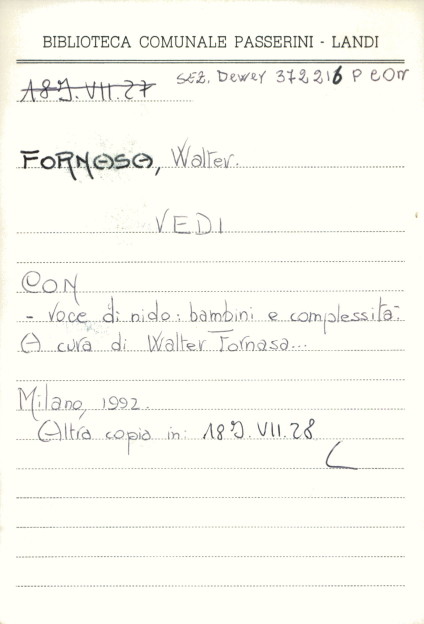 BIBLIOTECA COMUNALE PASSERINI - LANDI
18J.VII.27 SEZ. Dewey 372216 P CON
FORNASA, Walter.
VEDI
CON
- voce di nido: bambini e complessità-
A cura di Walter Fornasa...
Milano, 1992.
Altra copia in: 18J.VII.28